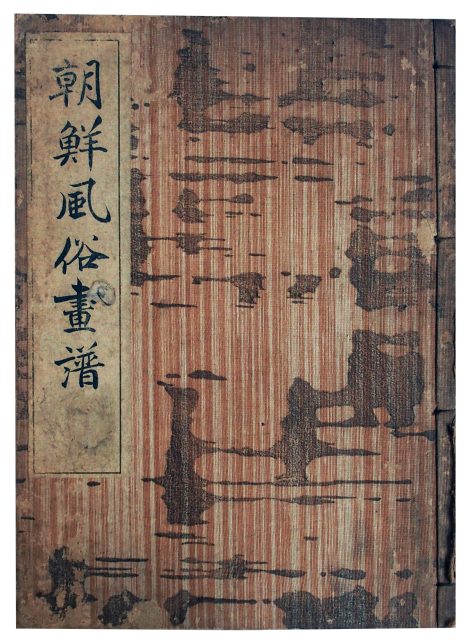 朝鮮風俗畫譜